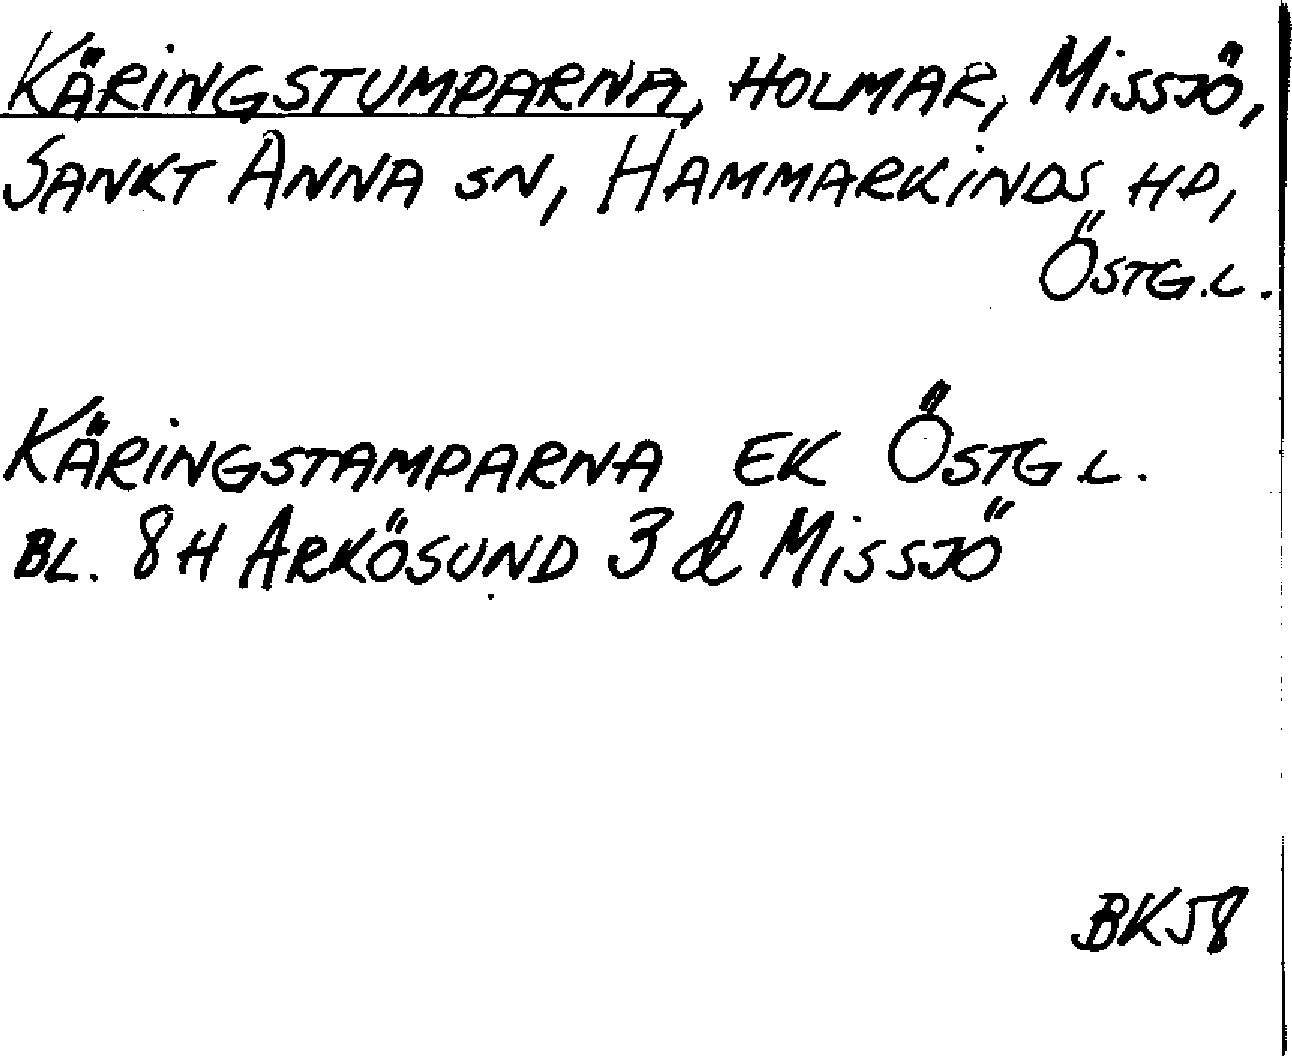 KÄRINGSTUMPARNA, HOLMAR, MISSJÖ,
SANKT ANNA SN, HAMMARKINDS HD,
ÖSTG.L.
KÄRINGSTAMPARNA EK ÖSTG.L.
BL. 8H ARKÖSUND 3d MISSJÖ
BK58